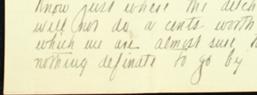 Know just where the ditch
will not do a cents worth
which we are almost sure
nothing definate to go by